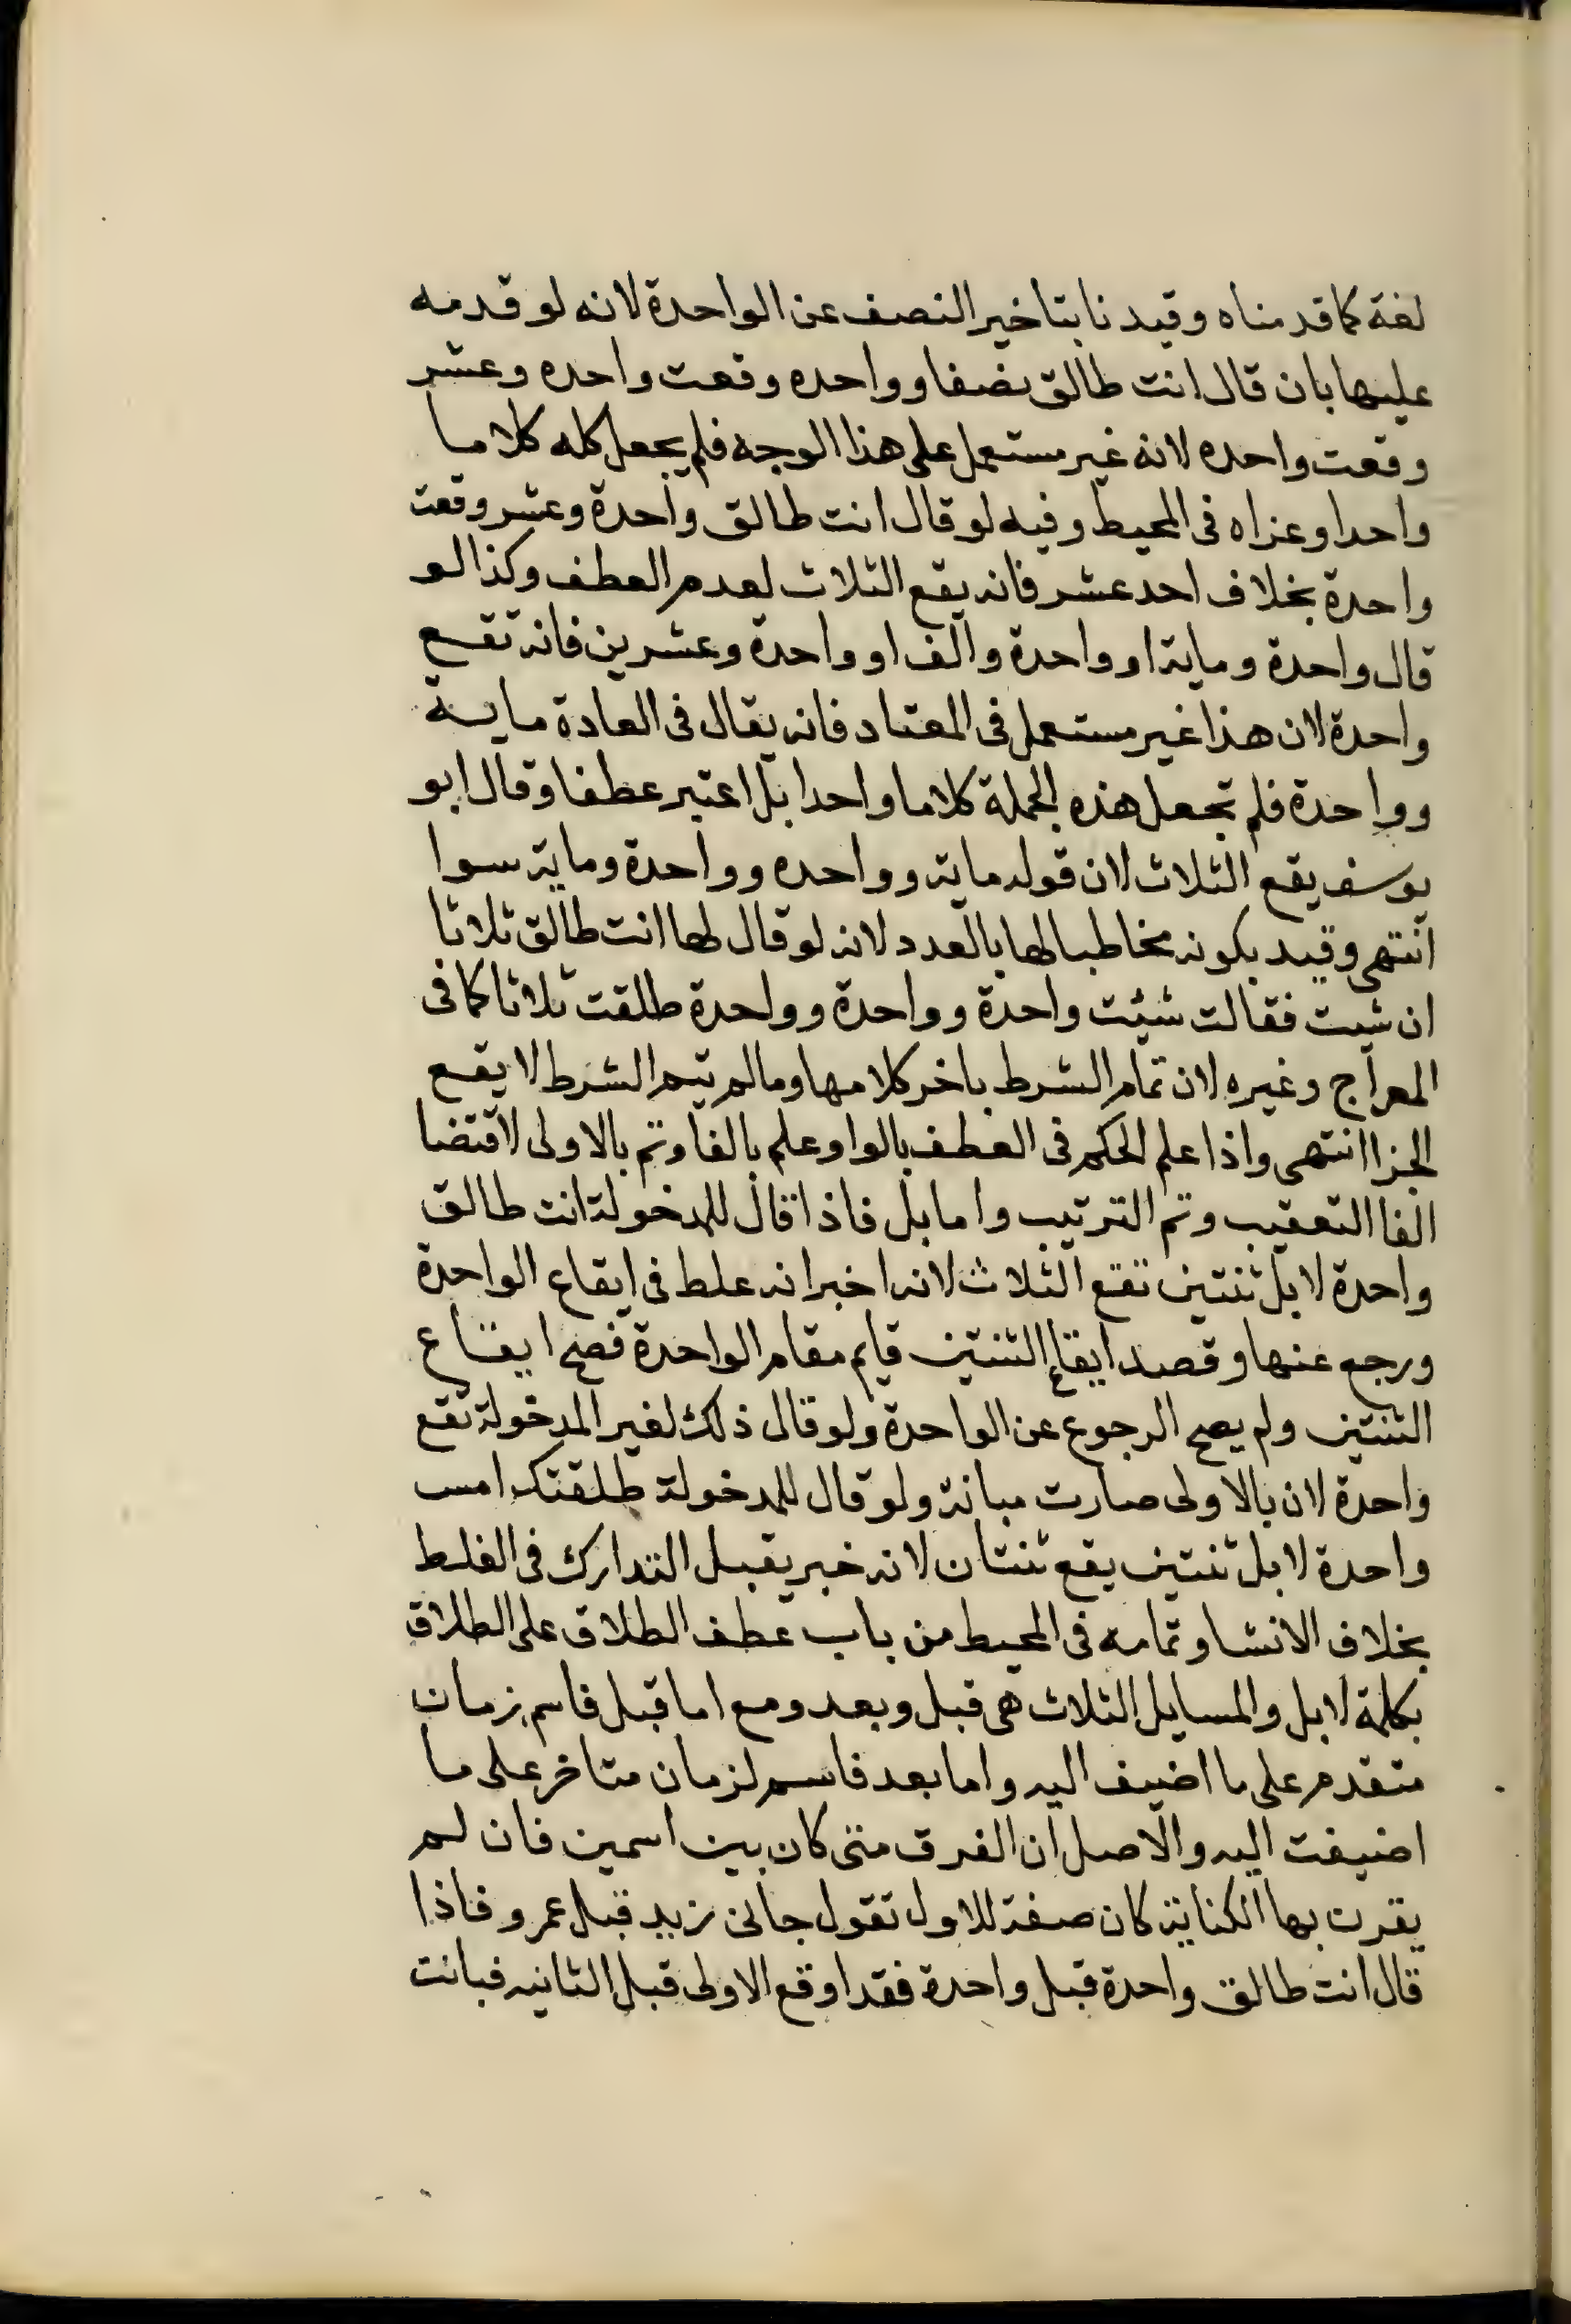 لغة كما قدمناه وقيدنا بتاخير النصف عن الواحدة لانه لو قدمه
عليها بان قال انت طالق نصفا وواحده وقعت واحده وعشر
وقعت واحده لانه غير مستعمل على هذا الوجه فلم يجعل كله كلاما
واحدا وعزاه فى المحيط وفيه لو قال انت طالق واحدة وعشر وقعت
واحدة بخلاف احد عشر فانه يقع الثلاث لعدم العطف وكذا لو
قال واحدة وماية او واحدة والف او واحدة وعشرين فانه تقع
واحدة لان هذا غير مستعمل فى المعتاد فانه يقال فى العادة ماية
وواحدة فلم تجعل هذه الجملة كلاما واحدا بل اعتبر عطفا وقال ابو
يوسف يقع الثلاث لان قوله ماية وواحده وواحدة وماية سوا
انتهى وقيد بكونه مخاطبا لها بالعدد لانه لو قال لها انت طالق ثلاثا
ان شيت فقالت شيئت واحدة وواحدة وواحدة طلقت ثلاثا كما فى
المعراج وغيره لان تمام الشرط باخر كلامها ومالم يتم الشرط لا يقع
الجزا انتهى واذا علم الحكم فى العطف بالواو علم بالفا وثم بالاولى لاقتضا
الفا التعقيب وثم الترتيب واما بل فاذا قال للمدخولة انت طالق
واحدة لا بل ثنتين تقع الثلاث لانه اخبر انه غلط فى ايقاع الواحدة
ورجع عنها وقصد ايقاع الثنتين قايم مقام الواحدة فصح ايقاع
الثنتين ولم يصح الرجوع عن الواحدة ولو قال ذلك لغير المدخولة تقع
واحدة لان بالاولى صارت مبانة ولو قال للمدخولة طلقتك امس
واحدة لا بل ثنتين يقع ثنتان لانه خبر يقبل التدارك فى الغلط
بخلاف الانشا وتمامه فى المحيط من باب عطف الطلاق على الطلاق
بكلمة لا بل والمسايل الثلاث هى قبل وبعد ومع اما قبل فاسم زمان
متقدم على ما اضيف اليه واما بعد فاسم لزمان متاخر على ما
اضيفت اليه والاصل ان الفرق متى كان بين اسمين فان لم
يقرن بها الكناية كان صفة للاول تقول جانى زيد قبل عمرو فاذا
قال انت طالق واحدة قبل واحدة فقد اوقع الاولى قبل الثانيه فبانت